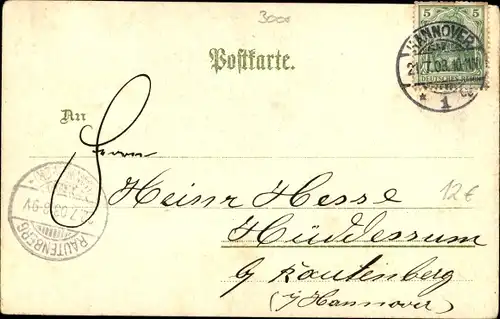 3000
5 5
DEUTSCHES REICH
HANNOVER
7.03.10-11
* 1
Postkarte.
An
Herrn
Heinr Hesse
12€
Hüddessum
b/ Rautenberg
(i/Hannover)
7.03
RAUTENBERG